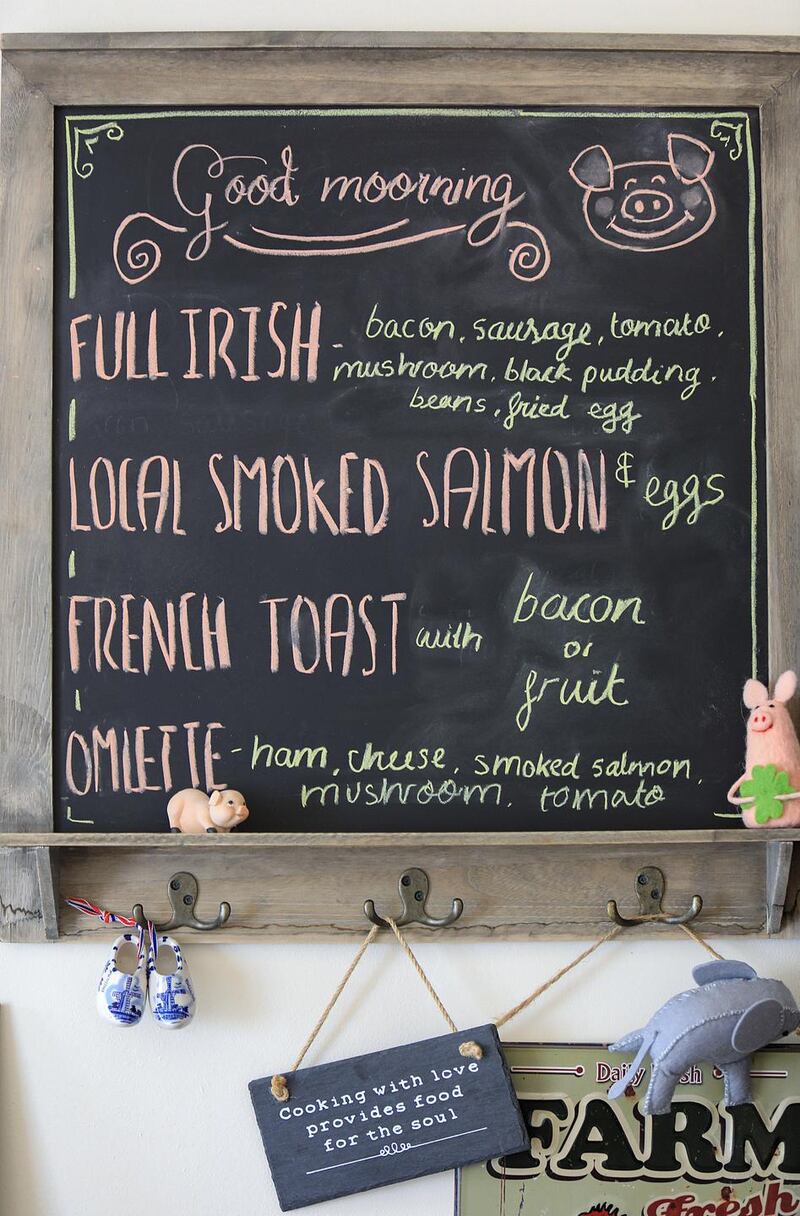 Good moorning
FULL IRISH - bacon, sausage, tomato,
mushroom, black pudding,
beans, fried egg
LOCAL SMOKED SALMON & eggs
FRENCH TOAST with bacon
or
fruit
OMLETTE - ham, cheese, smoked salmon,
mushroom, tomato
Cooking with love
provides food
for the soul
FARM
Fresh